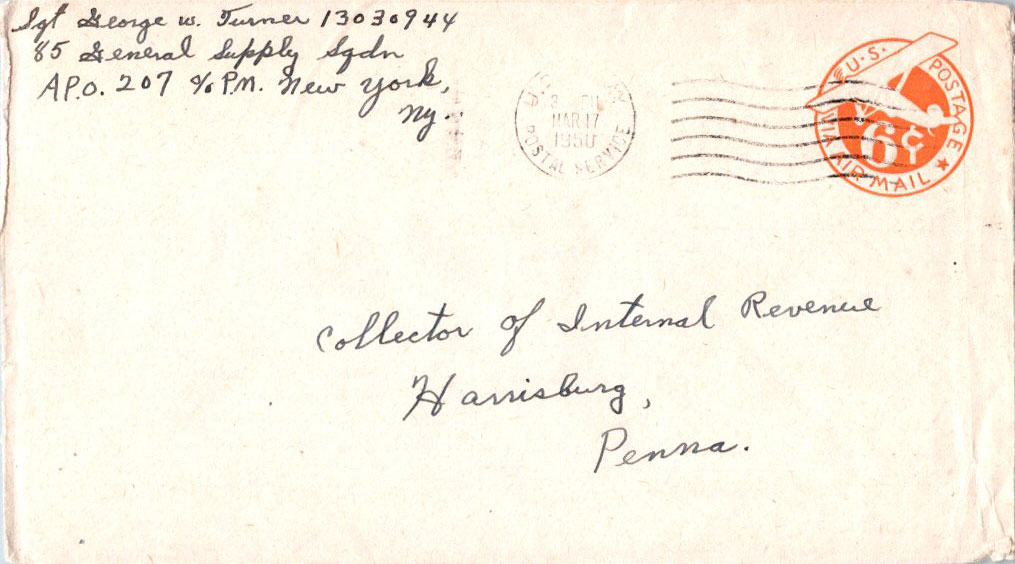 Sgt George W. Turner 13030944
85 General Supply Sqdn
A.P.O. 207 % P.M. New York,
Ny.
MAR 17
1950
POSTAL SERVICE
U.S. POSTAGE
6¢
VIA AIR MAIL
Collector of Internal Revenue
Harrisburg,
Penna.